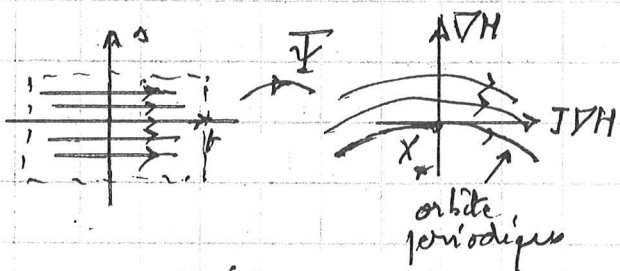 s
Ψ
∇H
t
J∇H
X*
orbite
périodique